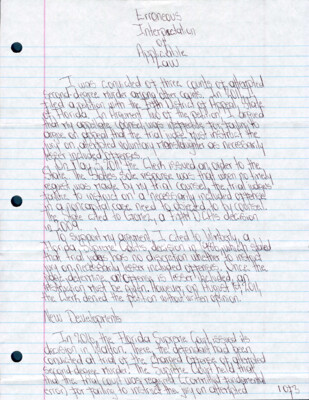 Erroneous
Interpretation
of
Applicable
Law
I was convicted of three counts of attempted
second degree murder among other counts. In 2011, I
filed a petition with the Fifth District of Appeal, State
of Florida. In Argument Two of the petition, I argued
that my appellate counsel was ineffective for failing to
argue on appeal that the trial judge must instruct the
jury on attempted voluntary manslaughter as necessarily
lesser included offenses.
On 2011, the Clerk issued an order to the
State. The State's sole response was that when no timely
request was made by my trial counsel, the trial judge's
failure to instruct on a necessarily included offense
in a noncapital case need to objected to by counsel.
The State cited to a Fifth DCA's decision
in 2009.
To support my argument, I cited to a
Florida Supreme Court's decision in which stated
that trial judges has no discretion whether to instruct
jury on necessarily lesser included offenses. Once the
judge determines an offense is lesser included, an
instruction must be given. However, on August 15, 2011,
the Clerk denied the petition without written opinion.
New Developments
In 2016, the Florida Supreme Court issued its
decision in There, the defendant had been
convicted at trial of the charged offense of attempted
second degree murder. The Supreme Court held that
that the trial court was required (committed fundamental
error) for failing to instruct the jury on attempted
1 of 3